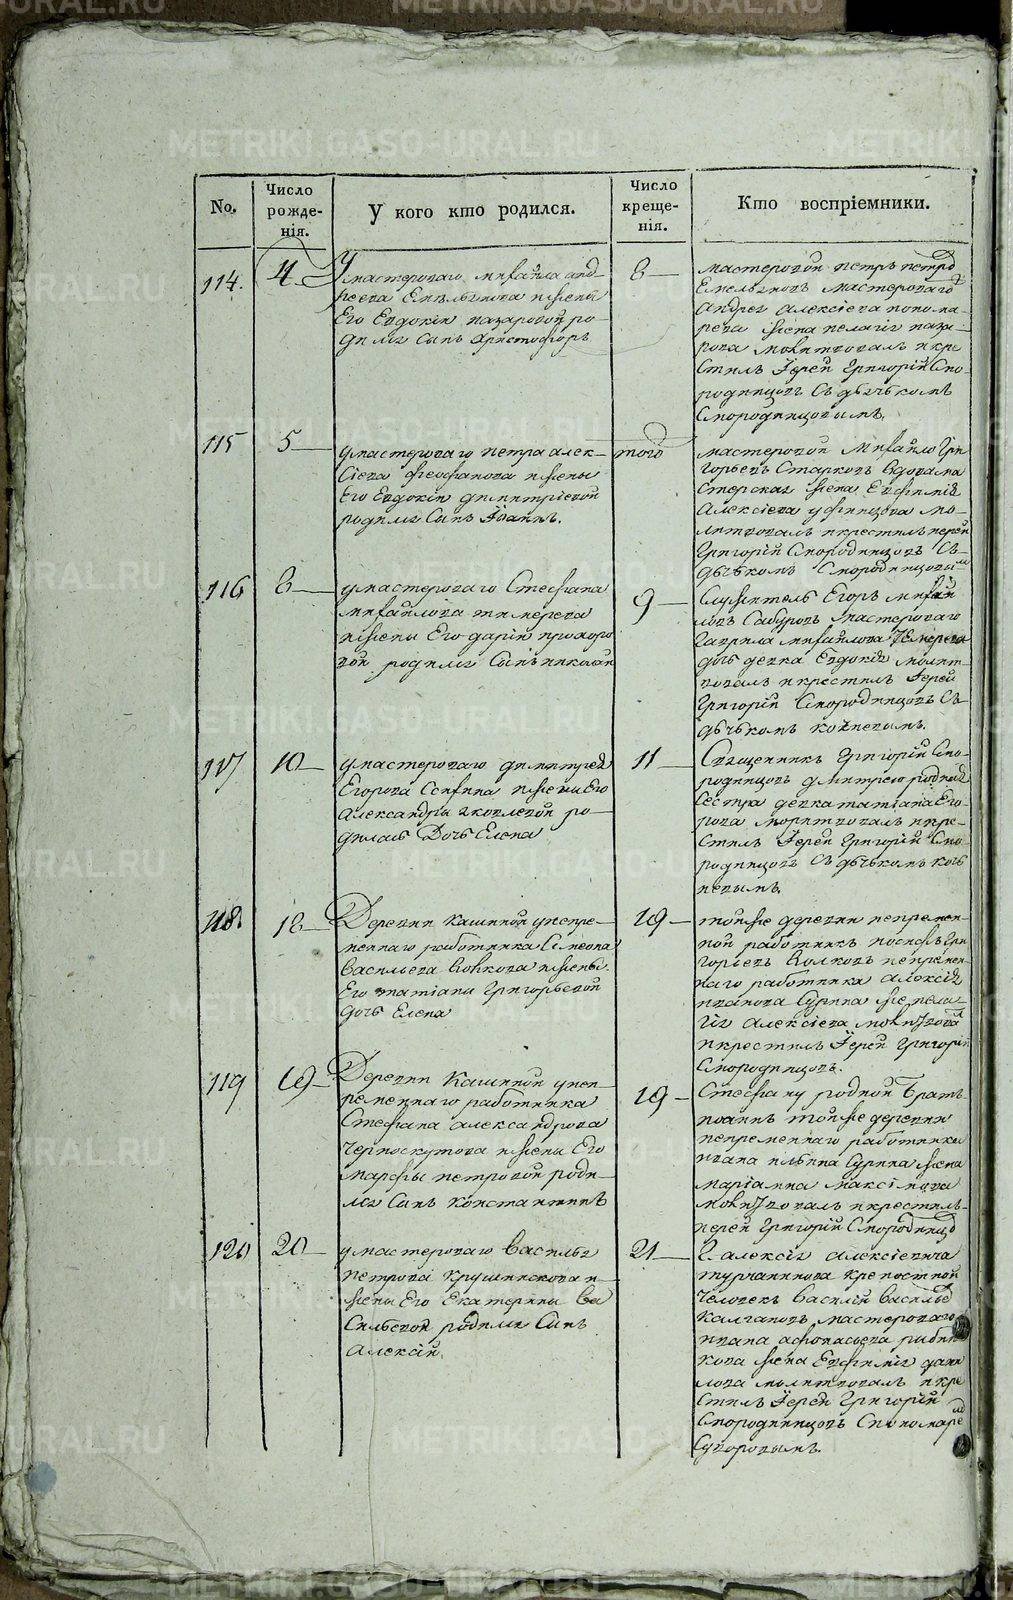 METRIKI.GASO-URAL.RU
No.
Число рожденія.
У кого кто родился.
Число крещенія.
Кто воспріемники.
114.
4
У мастероваго михайла анд-
реева Емельянова жены
Его Евдокіи назаровой ро-
дился Сынъ Христофоръ
8
мастеровой петръ петровъ
Емельяновъ мастероваго
андрея алексіева понома-
рева жена пелагія наза-
рова молитвовалъ и кре
стилъ Іерей Григорій Смо-
родинцовъ Съ дьячькомъ
Смородинцовымъ.
115
5
у мастероваго петра алек-
сіева феофанова жены
Его Евдокіи димитріевой
родился Сынъ Іоаннъ.
того
мастеровой Михайло Гри
горьевъ Старковъ вдова ма
стерская жена Евфимія
алексіева уфинцова мо-
литвовалъ и крестилъ іерей
Григорій Смородинцовъ Съ
дьячькомъ Смородинцовым
116
8
у мастероваго Стефана
михайлова темерева
жены Его даріи прохоро
вой родился Сынъ николай
9
Служитель Егоръ михай
ловъ Сабуровъ мастероваго
гаврила михайлова темерева
дочь девка Евдокія молит-
вовалъ и крестилъ Іерей
Григорій Смородинцовъ Съ
дьячькомъ кожневымъ.
117
10
у мастероваго димитрея
Егорова жены Его
александры яковлевой ро-
дилась Дочь Елена
11
Священникъ Григорій Смо-
родинцовъ димитрею родная
Сестра девка татіана Его-
рова молитвовалъ и кре-
стилъ Іерей Григорій Смо-
родинцовъ Съ дьячькомъ кож
невымъ.
118.
18
Деревни кашиной у непре-
меннаго работника Симеона
васильева волкова жены
Его татіаны Григорьевой
дочь Елена
19
тойже деревни непремен-
ной работникъ иосифъ Гри
горьевъ волковъ непремен-
наго работника алексія
иванова Сурина жена пела-
гія алексіева молитвовал
и крестилъ Іерей Григорій
Смородинцовъ.
119
19
Деревни Кашиной у неп-
ременнаго работника
Стефана александрова
черноскутова жены Его
марфы петровой роди-
лся Сынъ константинъ
19
Стефану родной братъ
иоаннъ тойже деревни
непременнаго работника
ивана ильина Сурина жена
маріамна максімова
молитвовалъ и крестилъ
іерей Григорій Смородинцов
120
20
у мастероваго василья
петрова крушинскова
жены Его Екатерины Ва
сильевой родился Сынъ
алексій.
21
Г. алексія алексіевича
турчанинова крепостной
человекъ василій васильев
калгановъ мастероваго
ивана афонасьева рыбни
кова жена Евфимія дани
лова молитвовалъ и кре
стилъ Іерей Григорій
Смородинцовъ Спономаре
м
Суворовымъ.